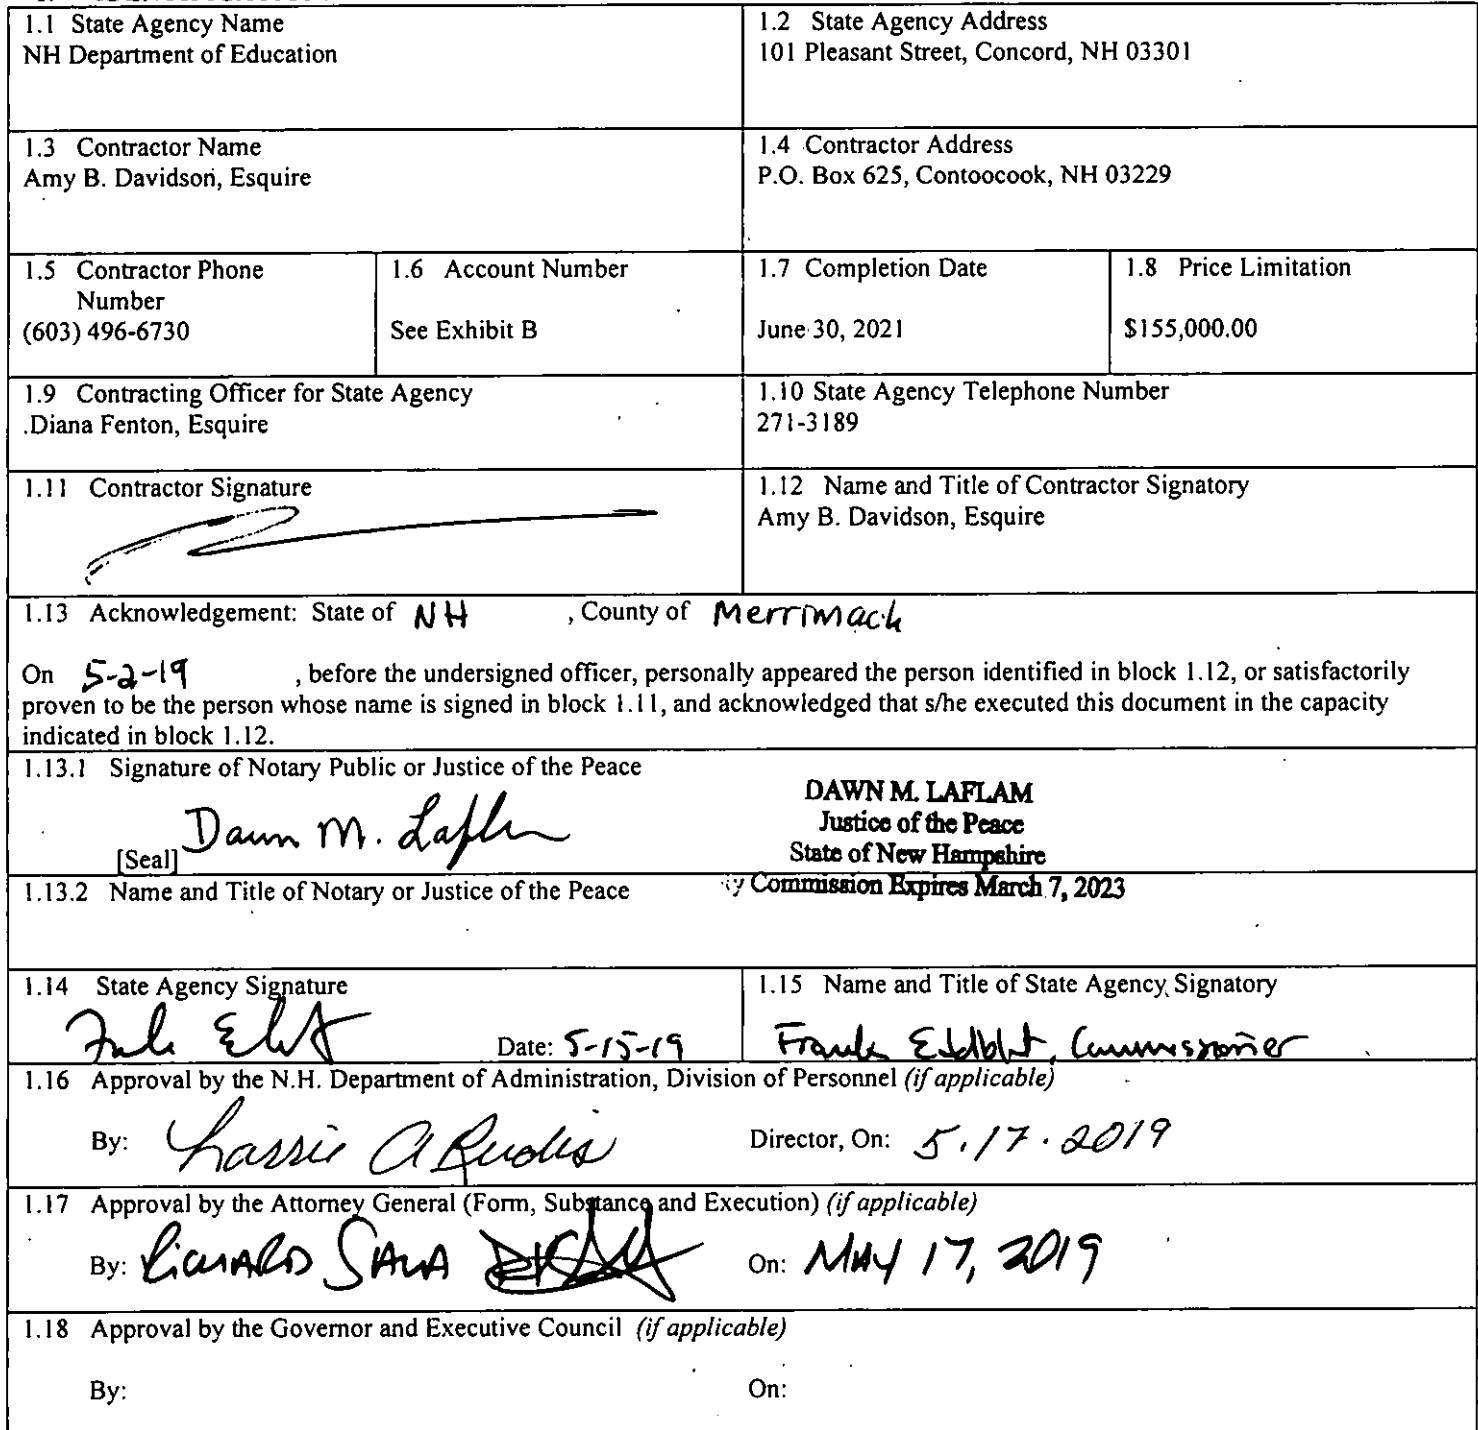 1.1 State Agency Name
NH Department of Education
1.2 State Agency Address
101 Pleasant Street, Concord, NH 03301
1.3 Contractor Name
Amy B. Davidson, Esquire
1.4 Contractor Address
P.O. Box 625, Contoocook, NH 03229
1.5 Contractor Phone
Number
(603) 496-6730
1.6 Account Number
See Exhibit B
1.7 Completion Date
June 30, 2021
1.8 Price Limitation
$155,000.00
1.9 Contracting Officer for State Agency
.Diana Fenton, Esquire
1.10 State Agency Telephone Number
271-3189
1.11 Contractor Signature
1.12 Name and Title of Contractor Signatory
Amy B. Davidson, Esquire
1.13 Acknowledgement: State of NH , County of Merrimack
On 5-2-19 , before the undersigned officer, personally appeared the person identified in block 1.12, or satisfactorily
proven to be the person whose name is signed in block 1.11, and acknowledged that s/he executed this document in the capacity
indicated in block 1.12.
1.13.1 Signature of Notary Public or Justice of the Peace
Dawn M. Laflam
[Seal]
DAWN M. LAFLAM
Justice of the Peace
State of New Hampshire
y Commission Expires March 7, 2023
1.13.2 Name and Title of Notary or Justice of the Peace
1.14 State Agency Signature
Date: 5-15-19
1.15 Name and Title of State Agency Signatory
Frank Edelblut, Commissioner
1.16 Approval by the N.H. Department of Administration, Division of Personnel (if applicable)
By: Director, On: 5.17.2019
1.17 Approval by the Attorney General (Form, Substance and Execution) (if applicable)
By: On: MAY 17, 2019
1.18 Approval by the Governor and Executive Council (if applicable)
By: On: